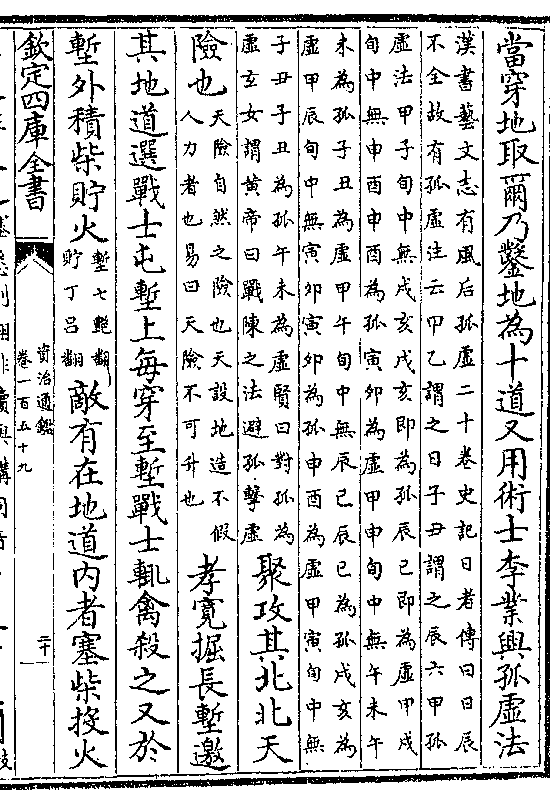 當穿地取爾乃鑿地為十道又用術士李業興孤虛法
漢書藝文志有風后孤虛二十卷史記日者傳曰日辰
不全故有孤虛注云甲乙謂之日子丑謂之辰六甲孤
虛法甲子旬中無戌亥戌亥即為孤辰巳即為虛甲戌
旬中無申酉申酉為孤寅卯為虛甲申旬中無午未午
未為孤子丑為虛甲午旬中無辰巳辰巳為孤戌亥為
虛甲辰旬中無寅卯寅卯為孤申酉為虛甲寅旬中無
子丑子丑為孤午未為虛賢曰對孤為
虛玄女謂黃帝曰戰陳之法避孤擊虛
聚攻其北北天
險也
天險自然之險也天設地造不假
人力者也易曰天險不可升也
孝寬掘長塹邀
其地道選戰士屯塹上每穿至塹戰士輒禽殺之又於
塹外積柴貯火
塹七艷翻
貯丁呂翻
敵有在地道內者塞柴投火
欽定四庫全書
資治通鑑
卷一百五十九
二十